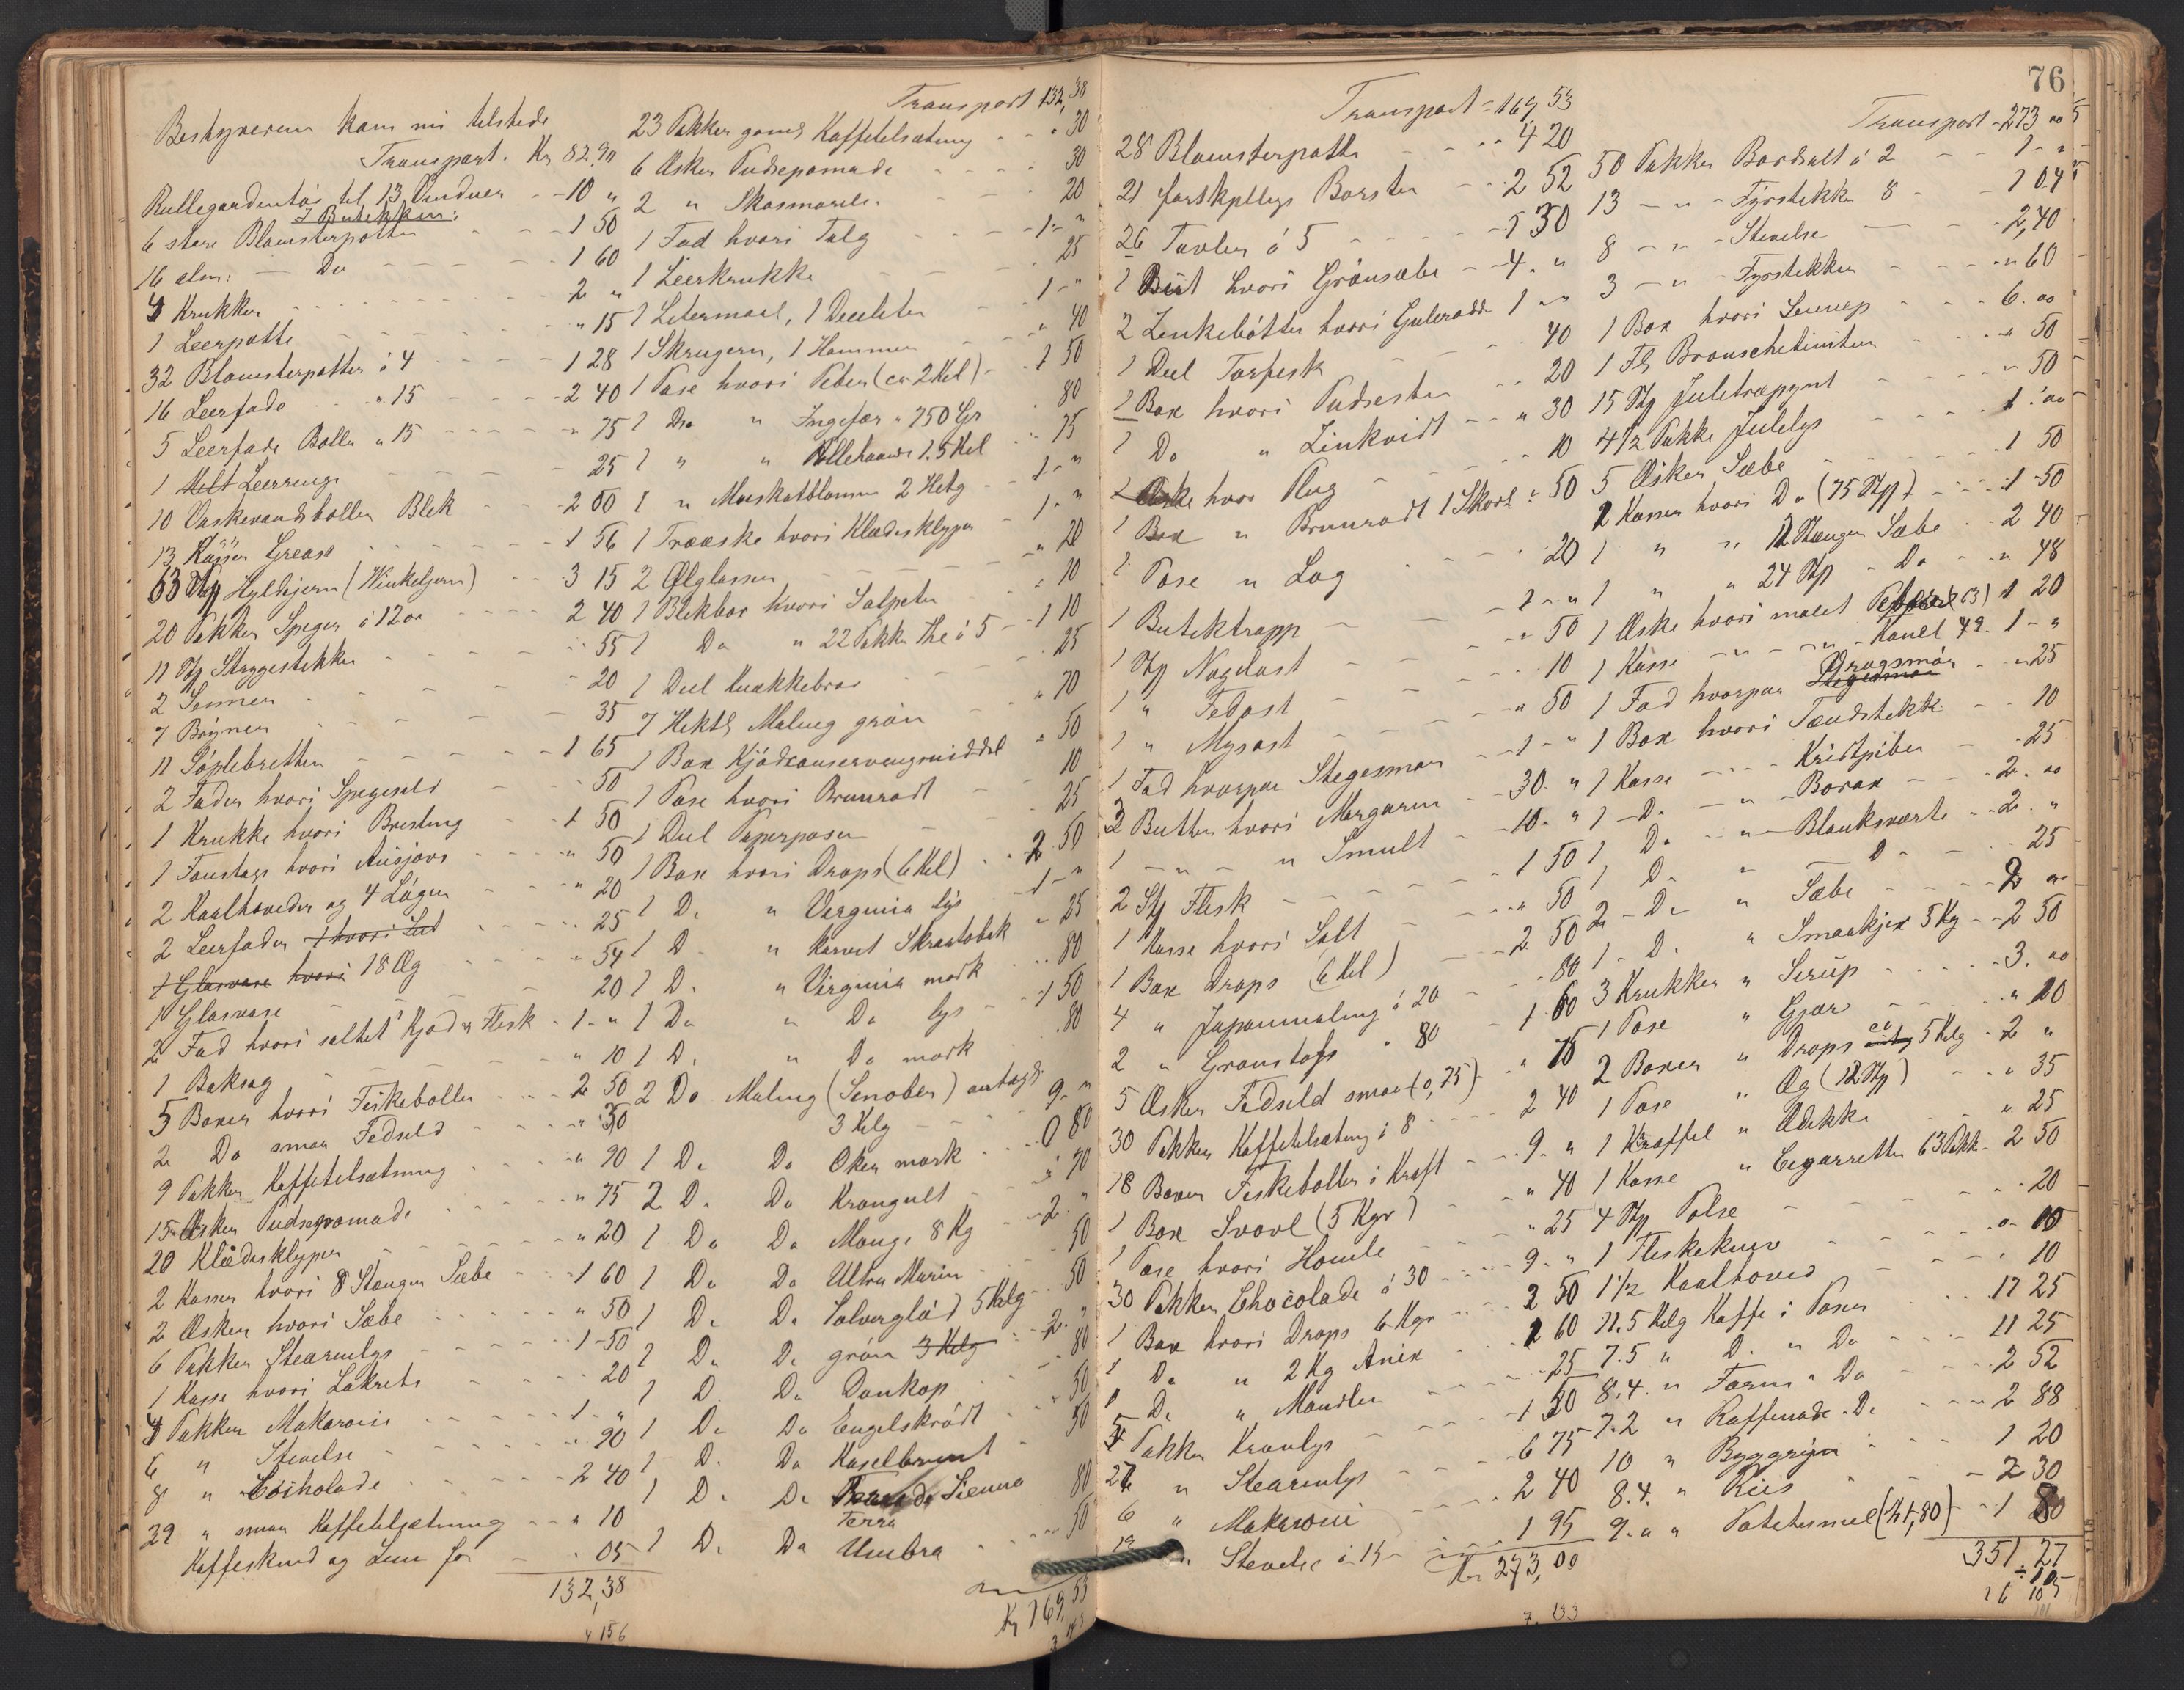 Bestyreren kom nu tilstede
Transport. Kr 82,90
Rullegardentöi til 13 Vinduer - - 10 "
I Butikken:
6 store Blomsterpotter - - - 1 50
16 alm: - Do - - - 1 60
4 Krukker - - - 2 "
1 Leerpotte - - - " 15
32 Blomsterpotter á 4 - - - 1 28
16 Leerfade " 15 - - - 2 40
5 Leerfade Boller " 15 - - - " 75
1 Leerringe - - - 25
10 Vaskevandsboller Blek - - - 2 00
13 Kasser Grease - - - 1 56
63 Stk Hyldejern (Winkeljern) - - 3 15
20 Pakker Spiger á 12 - - - 2 40
11 Stk Stryggestikker - - - 55
2 - - - 20
7 Bryner - - - 35
11 Söplebretter - - - 1 65
2 Fader hvori Spegesild - - 50
1 Krukke hvori Brisling - - 1 50
1 Foustage hvori Ansjovs - - " 50
2 Kaalhoveder og 4 Lögen - - " 20
2 Leerfader 1 hvori Sild - - 25
1 Glasvase hvori 18 Æg - - " 54
1 Glasvase - - 20
2 Fad hvori saltet Kjöd og Flesk - 1 - "
1 Baksag - - " 10
5 Boxer hvori Fiskeboller - - 2 50
2 Do smaa Fedsild - - " 50
9 Pakker Kaffetilsætning - - " 90
15 Æsker Pudsepomade - - " 75
20 Klædesklyper - - " 20
2 Kasser hvori 8 Stænger Sæbe - - 1 60
2 Æsker hvori Sæbe - - " 50
6 Pakker Stearinlys - - 1 - 50
1 Kasse hvori Lakrits - - 20
4 Pakker Makaroni - - 1 - "
6 " Stivelse - - " 90
8 " Choikolade - - 2 40
29 " smaa Kaffetilsætning - - " 10
Kaffeskind og Lim for - - 05
132,38
4 156
Transport 132,38
23 Pakker gaml Kaffetilsætning - - " 30
6 Æsker Pudsepomade - - 30
2 " Skosmørelse - - 20
1 Fad hvori Talg - - 1 - "
1 Leerkrukke - - 25
1 Litermaal, 1 Deciliter - - 1 - "
1 Skrugern, 1 Hammer - - " 40
1 Pose hvori Peber (ca 2 Kil) - - 1 50
1 Do " Ingefær " 750 Gr - 80
1 " " Allehaande 1.5 Kil - - 75
1 " Muskatblomme 2 Hektg - - 1 - "
1 Træaske hvori Klædesklyper - 1 - "
2 Ølglasser - - " 20
1 Blekbox hvori Salpeter - - " 10
1 Do " 22 Pakker The á 5 - - 1 10
1 Deel Knækkebrød - - 25
7 Hektl Maling grön - - " 70
1 Box Kjödconserveringsmiddel " 50
1 Pose hvori Brunrødt - 10
1 Deel Papirposer - - 25
1 Box hvori Drops (6 Kil) - - 2 50
1 Do " Virginia lys - 1 - "
1 D " Karvet Skraatobak " 25
1 D. " Virginia mørk - - 80
1 Do " Do lys - - 1 50
1 D. " Do mørk - - 80
2 Do Maling (Sinober) antagl.
3 Kilg - - 9 - "
1 D. Do Oker mørk - - 0 80
2 D. Do Krongult - - " 70
1 Do Do Mønge 8 Kg - - 2. "
1 Do Do Ultra Marin - - 50
1 D. Do Sølverglød 5 Kilg - - 50
1 Do Do grön 3 Kilg - - 2 "
1 D. Do Donkop - - 80
1 Do Do Engelskrödt - - 50
1 D. Do Kaselbrunt - 50
1 D. Do Terra di Sienna 80
Terra
1 D. Do Umbra - - 50
Kr 169,53
76
Transport - 169 53
28 Blomsterpotte - - 4 20
21 forskjellige Børster - - 2 52
26 Tavler á 5 - - - 1 30
1 Bøt hvori Grönsæbe - - 4. "
2 Zinkebötter hvori Gulerødder 1 - "
1 Deel Tørfisk - - 40
1 Box hvori Pudsesten - - 20
1 Do " Zinkvidt - - " 30
1 Æske hvor Plug - - 10
1 Box " Brunrødt 1 Skovl " 50
1 Pose " Log - - 20
1 Butiktrapp - - 1 - "
1 Stk Nøgelost - - - " 50
1 " Fedost - - - 10
1 " Mysost - - - " 50
1 Fad hvorpaa Stegesmør - - 1 - "
3 Butter hvori Margarin - - 30. "
1 - " - " Smult - - 10. "
2 Stk Flesk - - - 1 50
1 Kasse hvori Salt - - - " 50
1 Box Drops (6 Kil) - - 2 50
4 " Japanmaling á 20 - - - 80
2 " Gronstofs " 80 - 1 60
5 Æsker Fedsild smaa (0,75) - " 75
30 Pakker Kaffetilsætning á 8 - - 2 40
18 Boxer Fiskeboller i Kraft - - 9. "
1 Box Svovl (5 Kgr) - - " 40
1 Pose hvori Homle - - " 25
30 Pakker Chocolade á 30 - - 9. "
1 Box hvori Drops 6 Kgr - - 2 50
1 Do " 2 Kg Anix - - 1 60
1 Do " Mandler - - 25
5 Pakker Kronlys - - 1 50
27 " Stearinlys - - 6 75
6 " Makaroni - - 2 40
13 " Stevelse á 15 - - 1 95
Kr 273,00
7. 133
Transport - 273 00
50 Pakker Bordsalt á 2 - - 1 - "
13 - " - Fyrstikker 8 - - 1 04
8 - " - Stivelse - - 2,40
3 - " Fyrstikker - - - " 60
1 Box hvori Sennep - - - 6. 00
1 Fl Bronschetinktur - - " 50
15 Stk Juletrapynt - - - " 50
4 1/2 Pakke Julelys - - - 1. 00
5 Æsker Sæbe - - - 1 50
2 Kasser hvori Do (75 Stk) - - 1 - 50
1 " " 12 Stænger Sæbe - - 2 40
1 " " 24 Stk - Do - - " 48
1 Æske hvori malet Peber 1 20
1 Kasse - " - " - Kanel 49. 1 - "
1 Fad hvorpaa Stegesmør Drogsmör - - " 25
1 Box hvori Tændstikker - - 10
1 Kasse - - - Kridtpiber - - 25
1 - D. - " - Borax - - 2. 00
1 Do - " - Blanksværte - - 2. "
1 D. " D - - - 25
2 - Do " Sæbe - - 2 00
1 - D. " Smaakjex 5 Kg - - 2 50
3 Krukker " Sirup - - 3. 00
1 Pose " Gjær - - " 20
2 Boxer " Drops ca 5 Kilg - - 2 "
1 Pose " Æg (12 Stk) - - " 35
1 Karaffel " Eddikke - - " 25
1 Kasse " Cigarretter 63 Pakk - 2 50
4 Stk Pølse - - - 20
1 Fleskekniv - - - " 10
1 1/2 Kaalhoved - - - " 10
11.5 Kilg Kaffe i Poser - - 17 25
7.5 " D. " Do - - 11 25
8.4. " Farin " Do - - 2 52
7.2 " Raffinade - Do - - 2 88
10 " Byggrijn - - 1 20
8.4. " Riis " - - 2 30
9. " " Potetesmel (Kr 1,80) - - 1 80
351,27